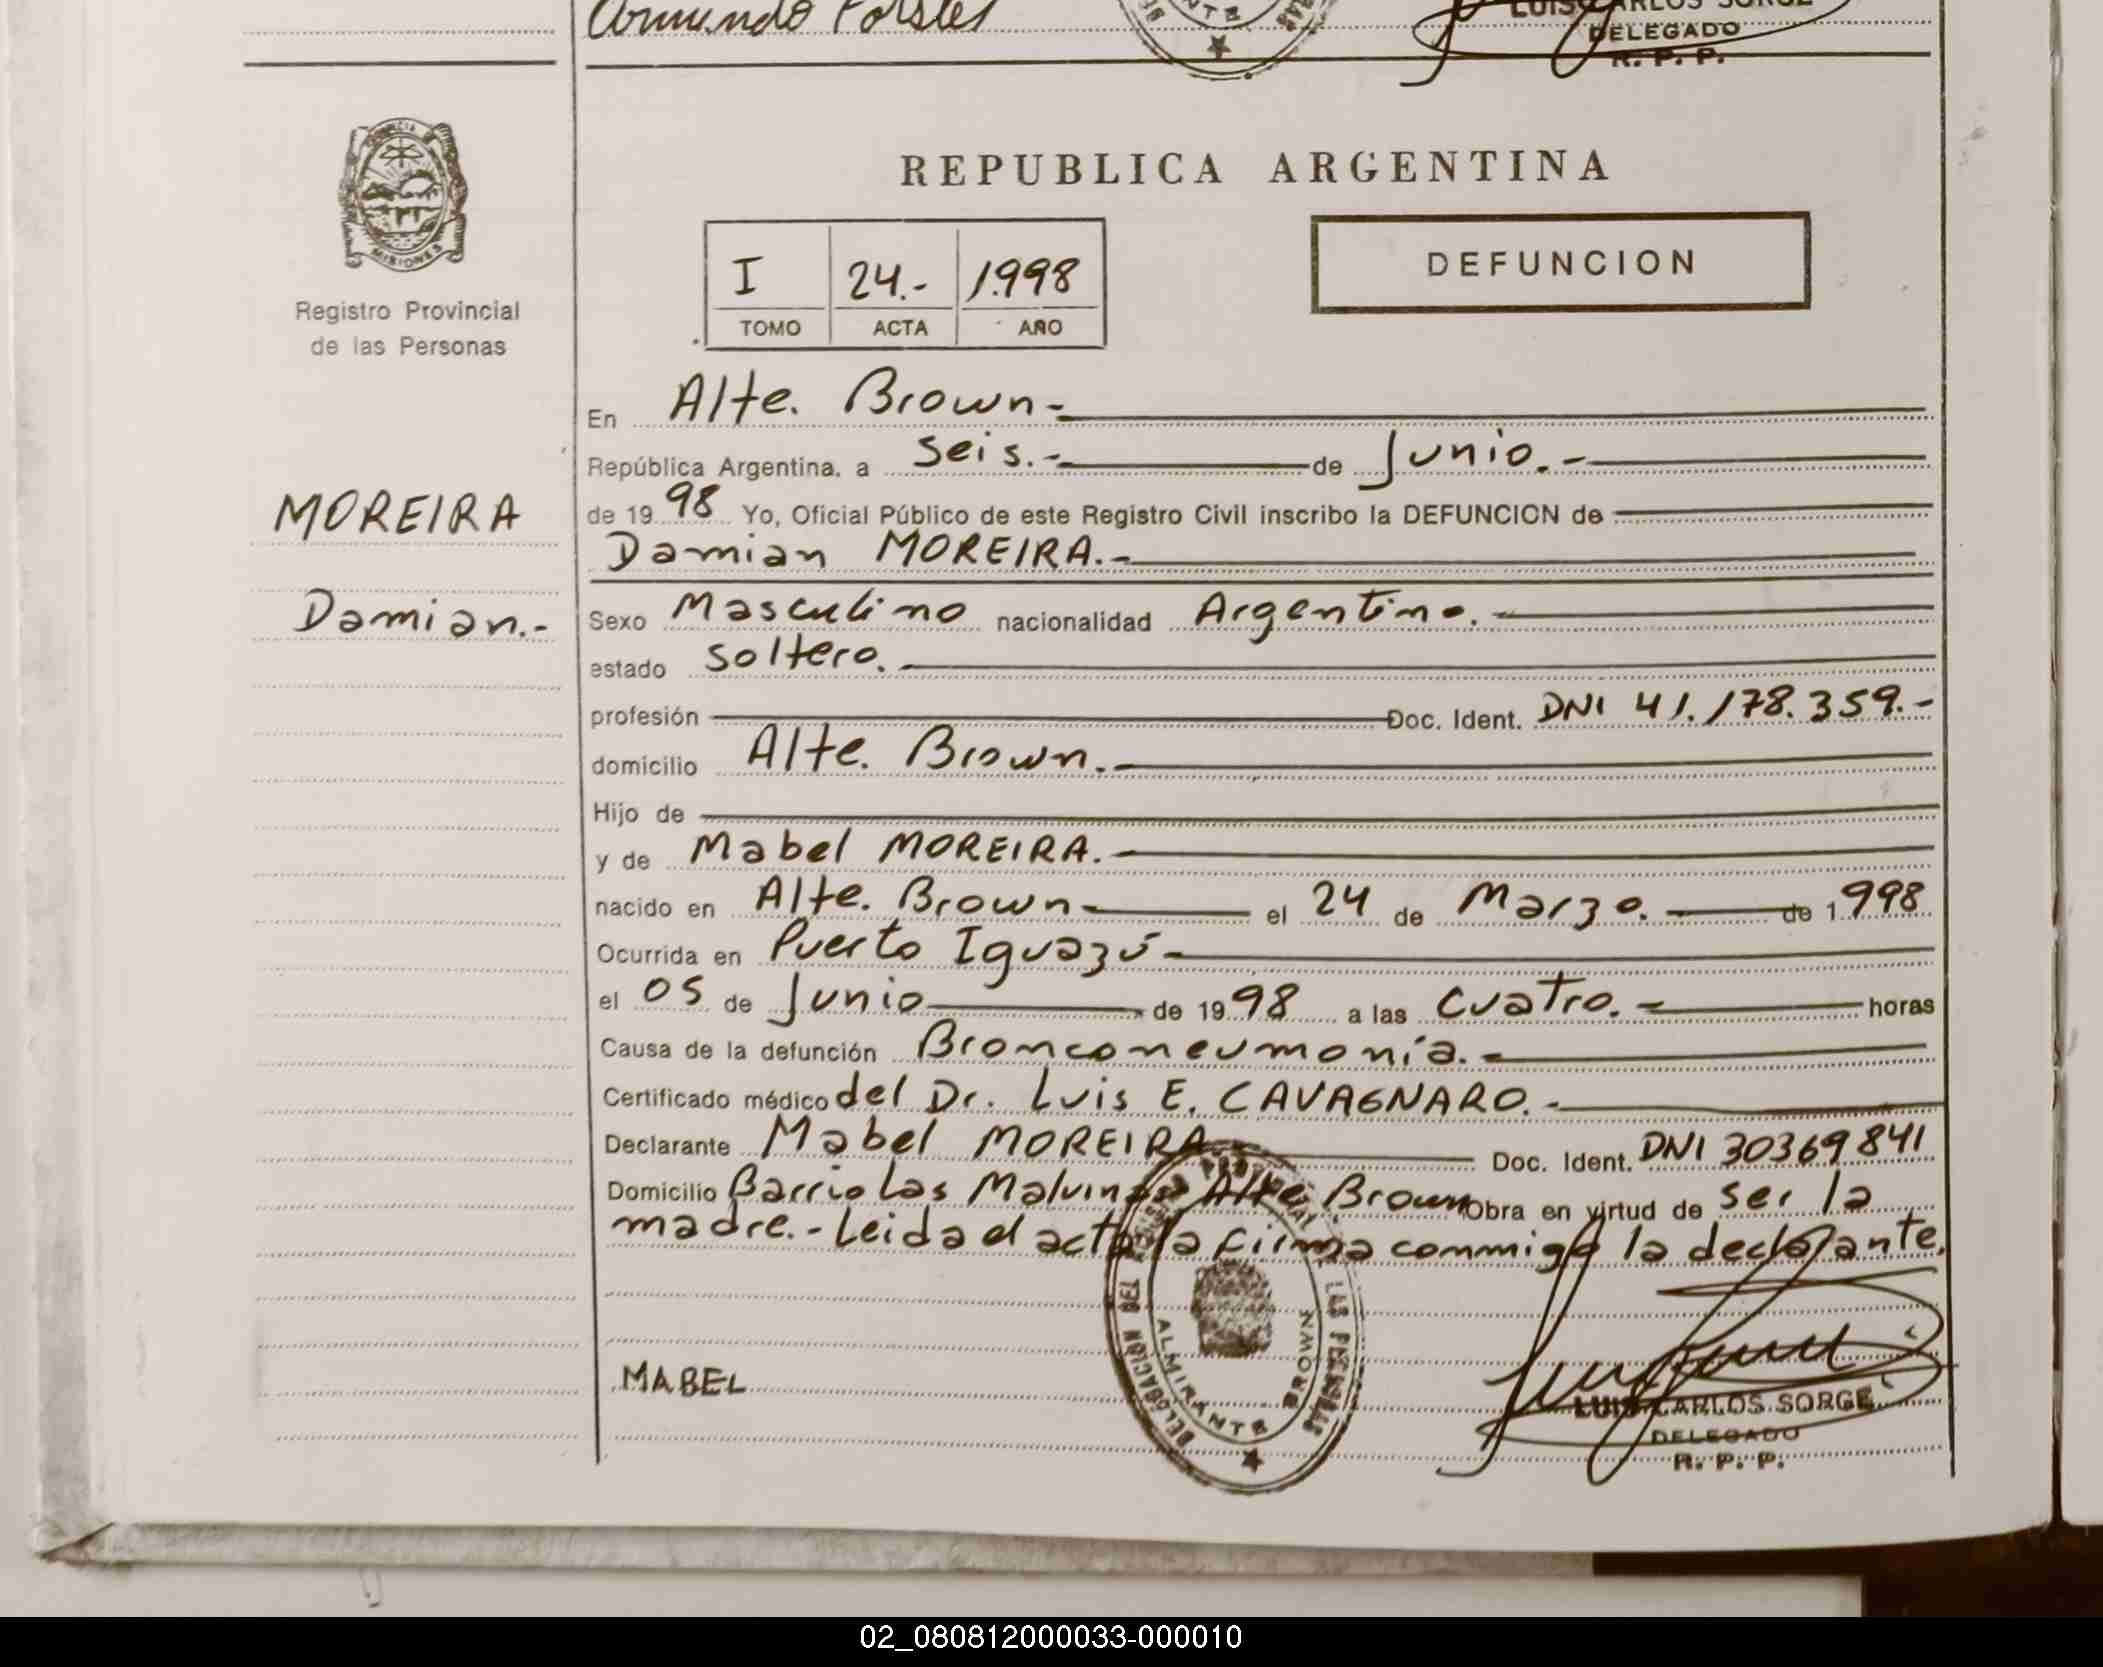 Armando Forster
LUIS CARLOS SORGE
DELEGADO
R. P. P.
PROVINCIA
MISIONES
Registro Provincial
de las Personas
REPUBLICA ARGENTINA
I 24.- 1.998
TOMO ACTA AÑO
DEFUNCION
MOREIRA
Damian.-
En Alte. Brown-
República Argentina, a seis.- de Junio.-
de 1998 Yo, Oficial Público de este Registro Civil inscribo la DEFUNCION de
Damian MOREIRA.-
Sexo Masculino nacionalidad Argentino.
estado soltero.
profesión Doc. Ident. DNI 41.178.359.-
domicilio Alte. Brown.-
Hijo de
y de Mabel MOREIRA.-
nacido en Alte. Brown- el 24 de Marzo. de 1998
Ocurrida en Puerto Iguazú-
el 05 de Junio de 1998 a las cuatro.- horas
Causa de la defunción Bronconeumonía.-
Certificado médico del Dr. Luis E. CAVAGNARO.-
Declarante Mabel MOREIRA Doc. Ident. DNI 30369841
Domicilio Barrio Las Malvinas Alte Brown Obra en virtud de ser la
madre.- Leida el acta la firma commigo la declarante.
MABEL
DELEGACION DEL REGISTRO PROVINCIAL DE LAS PERSONAS
ALMIRANTE BROWN
LUIS CARLOS SORGE
DELEGADO
R. P. P.
02_080812000033-000010